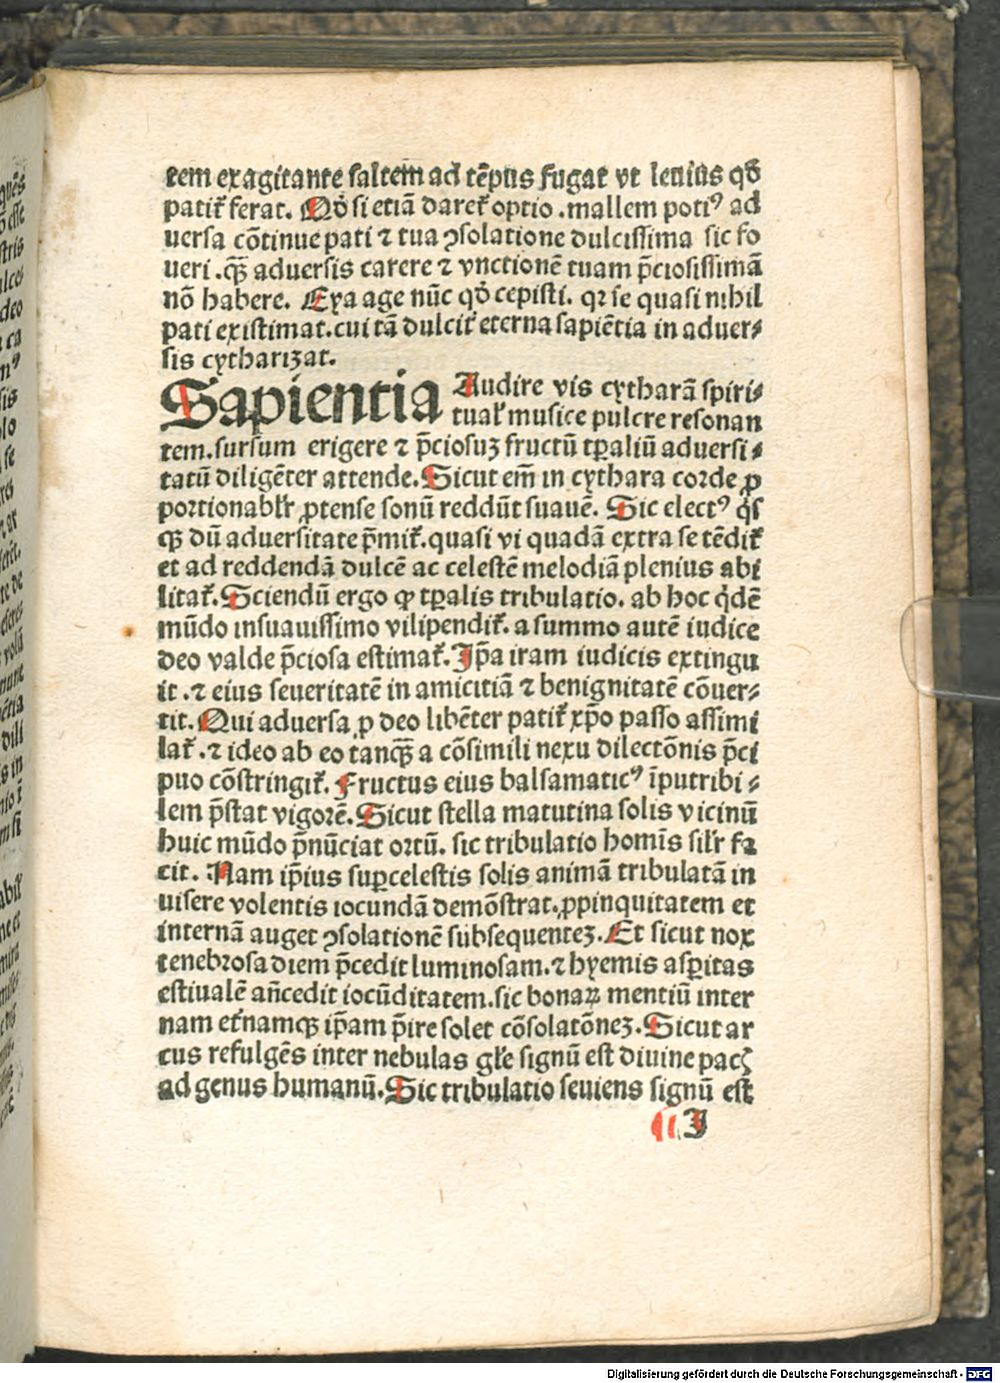 tem exagitante saltem ad tēpus fugat vt leuius qđ
patit᷑ ferat. Qđ si etiā daret᷑ optio .mallem potiꝰ ad
uersa cōtinue pati ⁊ tua ꝯsolatione dulcissima sic fo
ueri .qꝫ̄ aduersis carere ⁊ vnctionē tuam p̄ciosissimā
nō habere. Eya age nūc qđ cepisti. qr se quasi nihil
pati existimat.cui tā dulcit᷑ eterna sapiētia in aduer⸗
sis cytharizat.
Sapientia Audire vis cytharā spiri⸗
tual᷑ musice pulcre resonan
tem.sursum erigere ⁊ p̄ciosuꝫ fructū tꝑaliū aduersi⸗
tatū diligēter attende. Sicut em̄ in cythara corde ꝓ
portionabl᷑r ꝓtense sonū reddūt suauē. Sic electꝰ q̇s
qꝫ dū aduersitate p̄mit᷑.quasi vi quadā extra se tēdit᷑
et ad reddendā dulcē ac celestē melodiā plenius abi
litat᷑. Sciendū ergo ꝙ tꝑalis tribulatio. ab hoc q̇dē
mūdo insuauissimo vilipendit᷑. a summo autē iudice
deo valde p̄ciosa estimat᷑. Ip̄a iram iudicis extingu
it .⁊ eius seueritatē in amicitiā ⁊ benignitatē cōuer⸗
tit. Qui aduersa ꝓ deo libēter patit᷑ xp̄o passo assimi
lat᷑ .⁊ ideo ab eo tanqꝫ̄ a cōsimili nexu dilectōnis p̄ci
puo cōstringit᷑. Fructus eius balsamaticꝰ īputribi⸗
lem p̄stat vigorē. Sicut stella matutina solis vicinū
huic mūdo p̄nūciat ortū. sic tribulatio homīs sil᷑r fa
cit. Nam ip̄ius suꝑcelestis solis animā tribulatā in
uisere volentis iocundā demōstrat.ꝓpinquitatem et
internā auget ꝯsolationē subsequenteꝫ. Et sicut nox
tenebrosa diem p̄cedit luminosam.⁊ hyemis asꝑitas
estiualē an̄cedit iocūditatem.sic bonaꝝ mentiū inter
nam et᷑namqꝫ ip̄am p̄ire solet cōsolatōneꝫ. Sicut ar
cus refulgēs inter nebulas gl᷑e signū est diuine pacꝭ
ad genus humanū. Sic tribulatio seuiens signū est
I
Digitalisierung gefördert durch die Deutsche Forschungsgemeinschaft - DFG